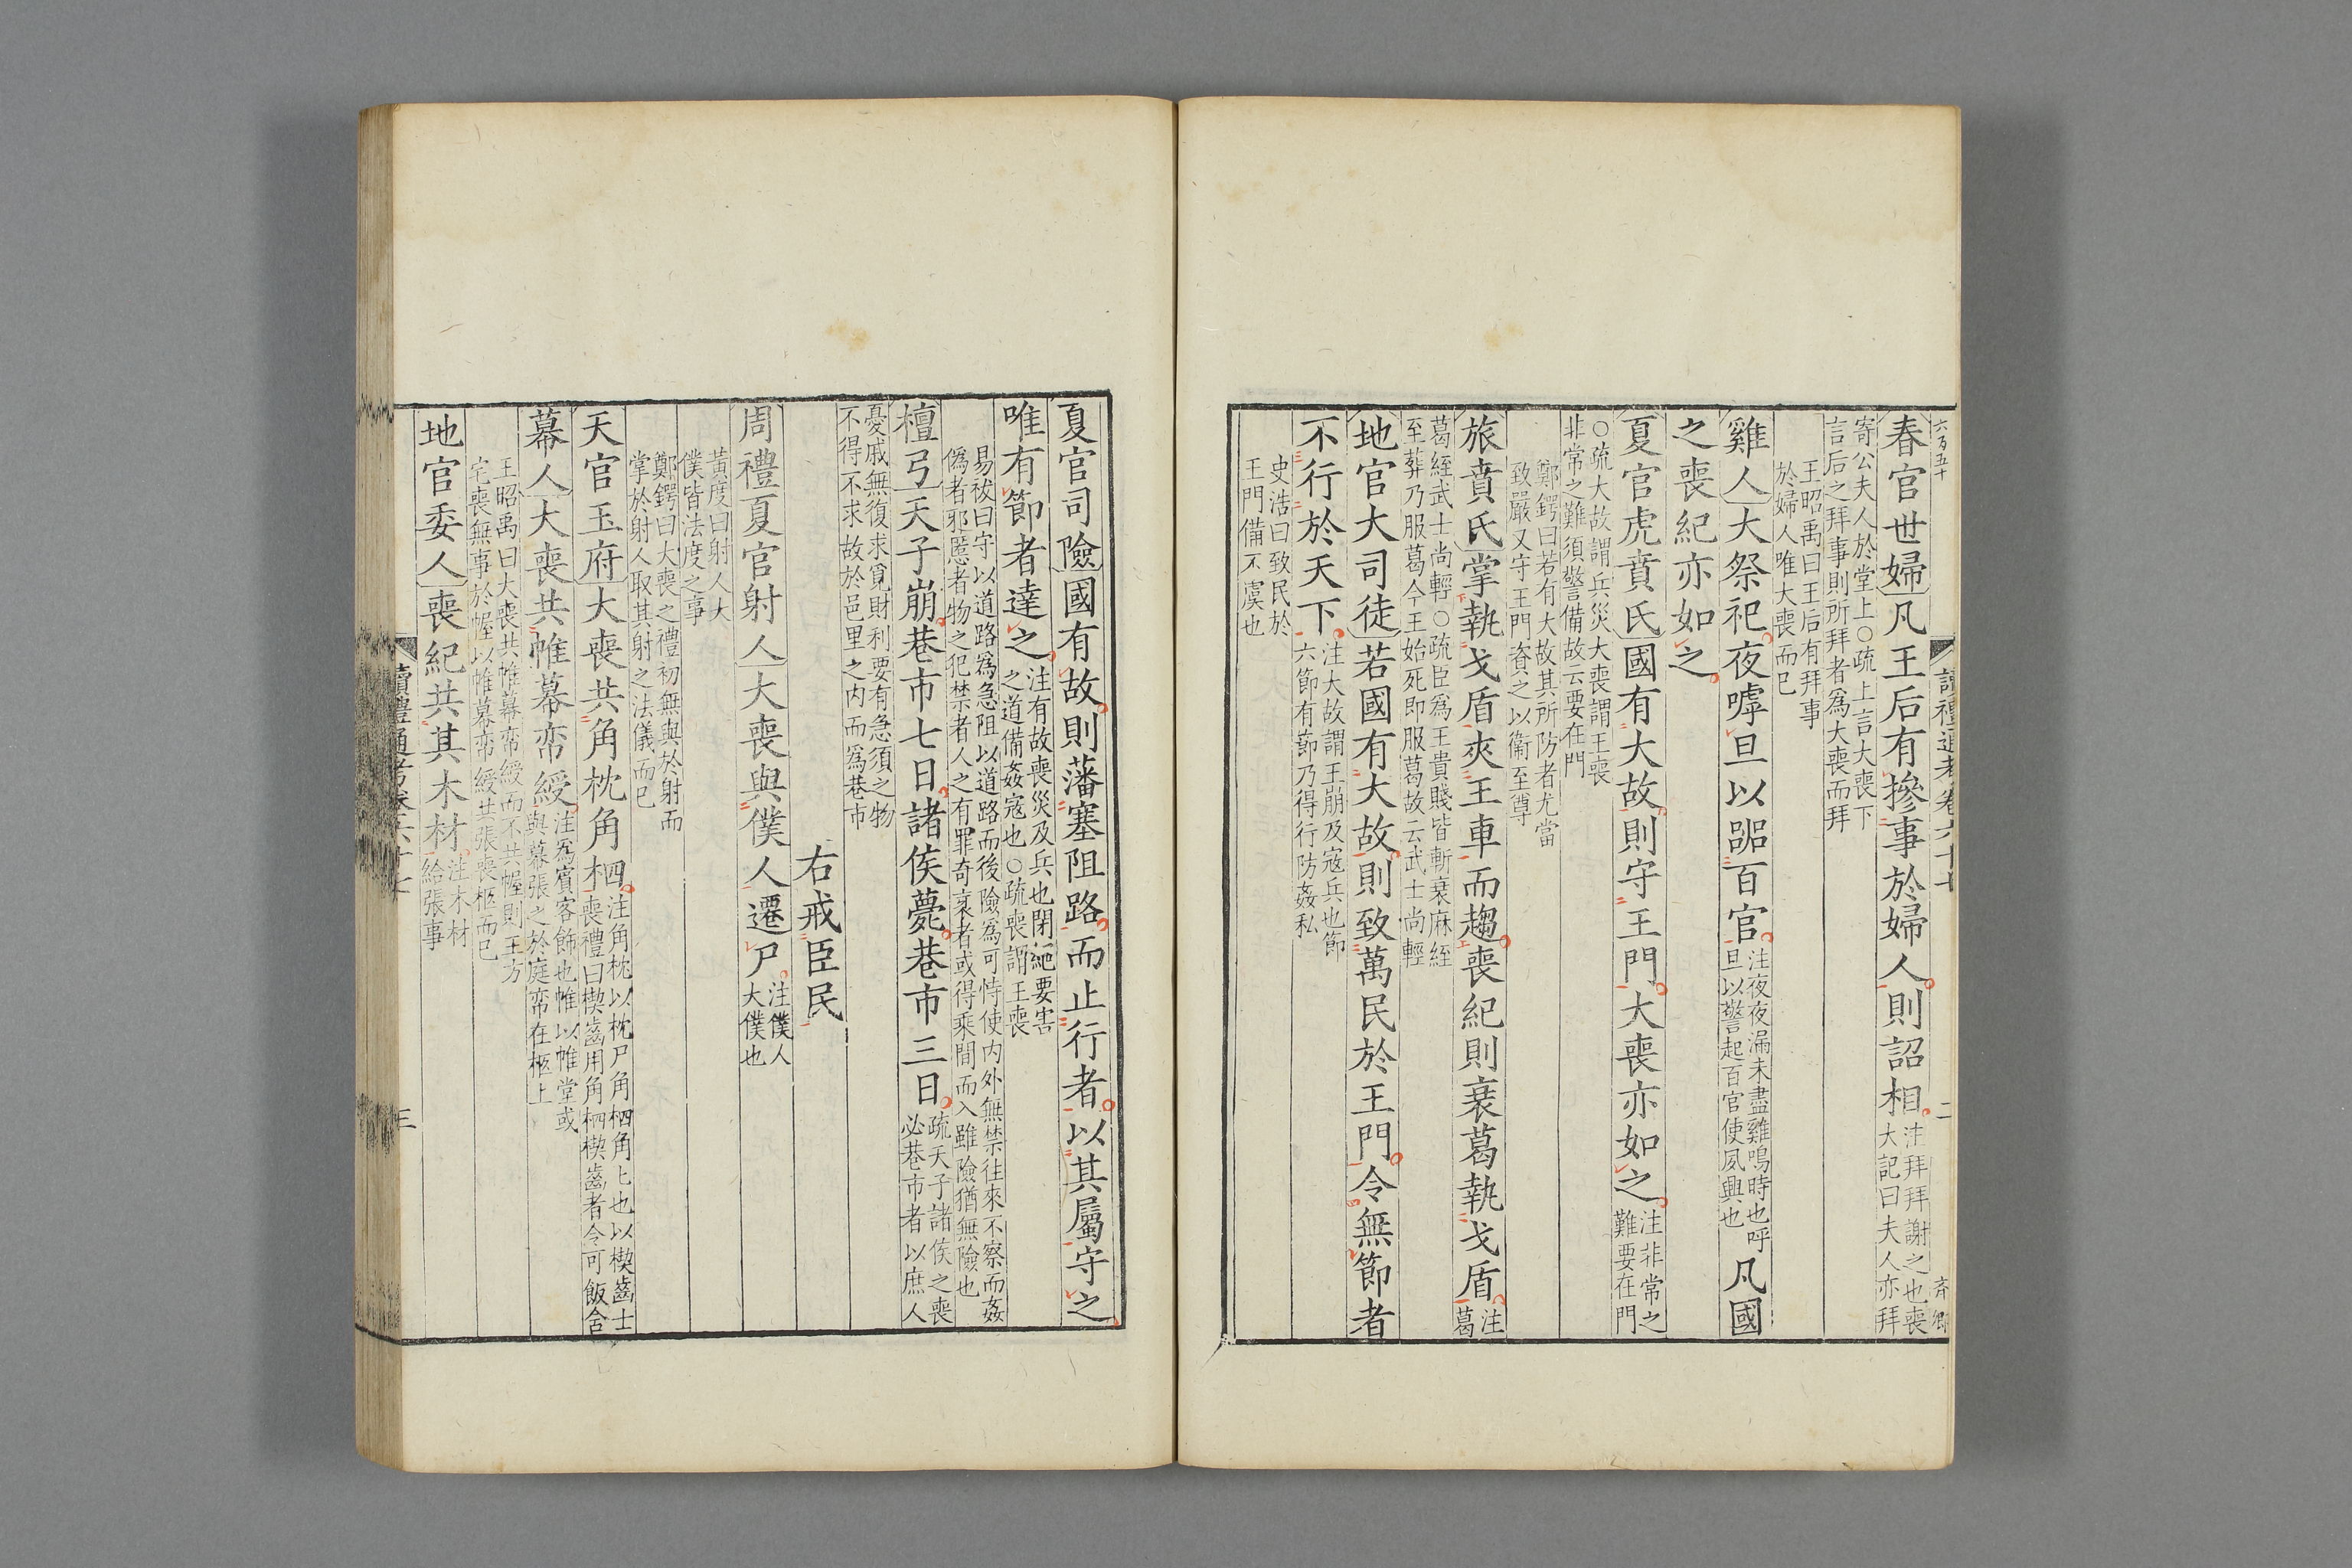 六百五十
讀禮通考卷六十七
二
春官世婦凡王后有摻事於婦人則詔相注拜拜謝之也喪
大記曰夫人亦拜
寄公夫人於堂上○疏上言大喪下
言后之拜事則所拜者爲大喪而拜
王昭禹曰王后有拜事
於婦人唯大喪而已
雞人大祭祀夜嘑旦以嘂百官注夜夜漏未盡雞鳴時也呼
旦以警起百官使夙興也凡國
之喪紀亦如之
夏官虎賁氏國有大故則守王門大喪亦如之注非常之
難要在門
○疏大故謂兵災大喪謂王喪
非常之難須警備故云要在門
鄭鍔曰若有大故其所防者尤當
致嚴又守王門資之以衞至尊
旅賁氏掌執戈盾夾王車而趨喪紀則衰葛執戈盾注
葛
葛絰武士尚輕○疏臣爲王貴賤皆斬衰麻絰
至葬乃服葛今王始死即服葛故云武士尚輕
地官大司徒若國有大故則致萬民於王門令無節者
不行於天下注大故謂王崩及寇兵也節
六節有節乃得行防姦私
史浩曰致民於
王門備不虞也
夏官司險國有故則藩塞阻路而止行者以其屬守之
唯有節者達之注有故喪災及兵也閉絕要害
之道備姦寇也○疏喪謂王喪
易祓曰守以道路爲急阻以道路而後險爲可恃使内外無禁往來不察而姦
僞者邪慝者物之犯禁者人之有罪奇衺者或得乘間而入雖險猶無險也
檀弓天子崩巷市七日諸侯薨巷市三日疏天子諸侯之喪
必巷市者以庶人
憂戚無復求覓財利要有急須之物
不得不求故於邑里之内而爲巷市
右戒臣民
周禮夏官射人大喪與僕人遷尸注僕人
大僕也
黃度曰射人大
僕皆法度之事
鄭鍔曰大喪之禮初無與於射而
掌於射人取其射之法儀而已
天官玉府大喪共角枕角柶注角枕以枕尸角柶角匕也以楔齒士
喪禮曰楔齒用角柶楔齒者令可飯含
幕人大喪共帷幕帟綬注爲賓客飾也帷以帷堂或
與幕張之於庭帟在柩上
王昭禹曰大喪共帷幕帟綬而不共幄則王方
宅喪無事於幄以帷幕帟綬共張喪柩而已
地官委人喪紀共其木材注木材
給張事
讀禮通考卷六十七
三